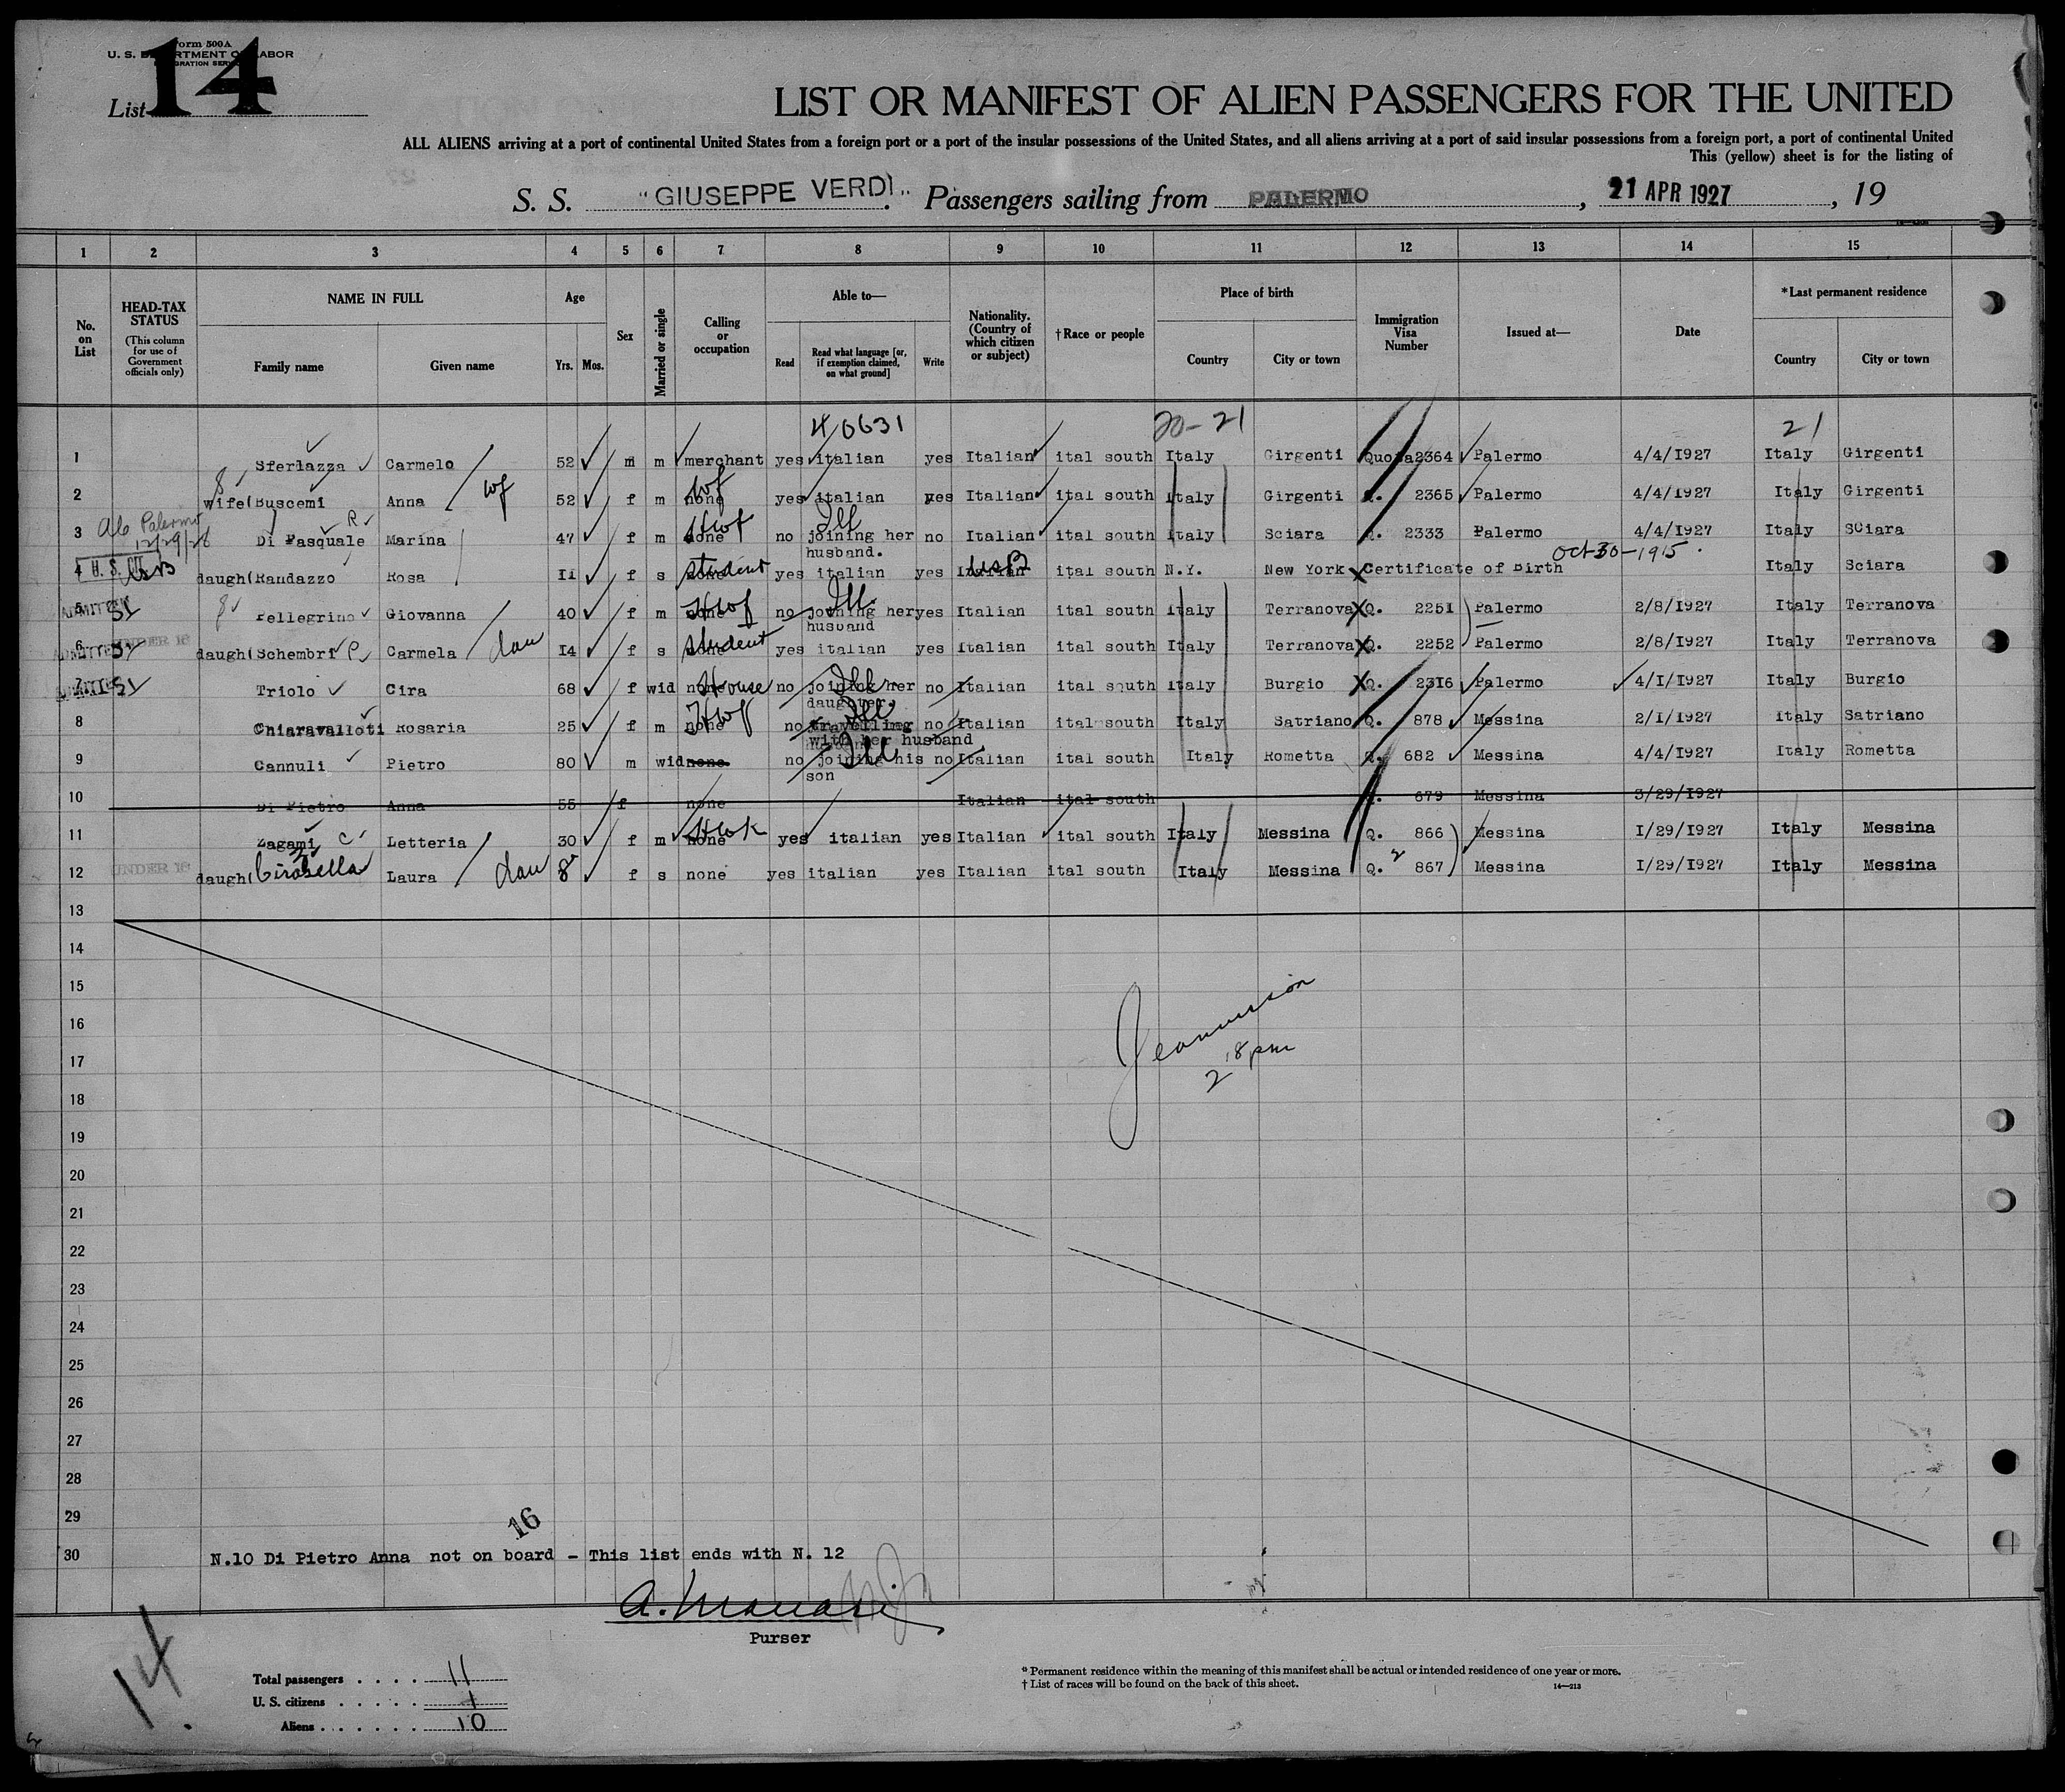 Form 500A
U. S. DEPARTMENT OF LABOR
IMMIGRATION SERVICE
List 14
LIST OR MANIFEST OF ALIEN PASSENGERS FOR THE UNITED
ALL ALIENS arriving at a port of continental United States from a foreign port or a port of the insular possessions of the United States, and all aliens arriving at a port of said insular possessions from a foreign port, a port of continental United
This (yellow) sheet is for the listing of
S. S. "GIUSEPPE VERDI" Passengers sailing from PALERMO, 21 APR 1927, 19
1 2 3 4 5 6 7 8 9 10 11 12 13 14 15
No. on List
HEAD-TAX STATUS (This column for use of Government officials only)
NAME IN FULL Family name Given name
Age Yrs. Mos.
Sex
Married or single
Calling or occupation
Able to— Read Read what language [or, if exemption claimed, on what ground] Write
Nationality. (Country of which citizen or subject)
†Race or people
Place of birth Country City or town
Immigration Visa Number
Issued at—
Date
*Last permanent residence Country City or town
40631 20-21 21
1 Sferlazza Carmelo 52 m m merchant yes italian yes Italian ital south Italy Girgenti Quota 2364 Palermo 4/4/1927 Italy Girgenti
2 wife(Buscemi Anna wf 52 f m none wf yes italian yes Italian ital south Italy Girgenti Q. 2365 Palermo 4/4/1927 Italy Girgenti
Palermo 12/29/26 R
3 Di Pasquale Marina 47 f m none Hwf no joining her husband. Ill no Italian ital south Italy Sciara Q. 2333 Palermo 4/4/1927 Italy Sciara
Oct 30-1915.
4 U.S. CIT. USB daugh(Randazzo Rosa II f s none student yes italian yes Italian USB ital south N.Y. New York Certificate of Birth Italy Sciara
5 ADMITTED SI Pellegrino Giovanna 40 f m none Hwf no joining her husband Ill yes Italian ital south Italy Terranova Q. 2251 Palermo 2/8/1927 Italy Terranova
6 ADMITTED SI UNDER 16 daugh(Schembri P Carmela dau I4 f s none student yes italian yes Italian ital south Italy Terranova Q. 2252 Palermo 2/8/1927 Italy Terranova
7 ADMITTED SI Triolo Cira 68 f wid none House no joining her daughter. Ill no Italian ital south Italy Burgio Q. 2316 Palermo 4/I/1927 Italy Burgio
8 Chiaravalloti Rosaria 25 f m none Hwf no travelling with her husband Ill no Italian ital south Italy Satriano Q. 878 Messina 2/I/1927 Italy Satriano
9 Cannuli Pietro 80 m wid none no joining his son Ill no Italian ital south Italy Rometta Q. 682 Messina 4/4/1927 Italy Rometta
10 Di Pietro Anna 55 f none Italian ital south Q. 679 Messina 3/29/1927
11 Zagami C Letteria 30 f m none Hwk yes italian yes Italian ital south Italy Messina Q. 866 Messina I/29/1927 Italy Messina
12 UNDER 16 daugh( Cirabella Laura dau 8 f s none yes italian yes Italian ital south Italy Messina Q. 867 Messina I/29/1927 Italy Messina
13
14
15
16
17
2 18 pm
18
19
20
21
22
23
24
25
26
27
28
29
16
30 N.10 Di Pietro Anna not on board - This list ends with N. 12
Purser
14
Total passengers . . . . 11
U. S. citizens . . . . . 1
Aliens . . . . . . 10
* Permanent residence within the meaning of this manifest shall be actual or intended residence of one year or more.
† List of races will be found on the back of this sheet.
14—213